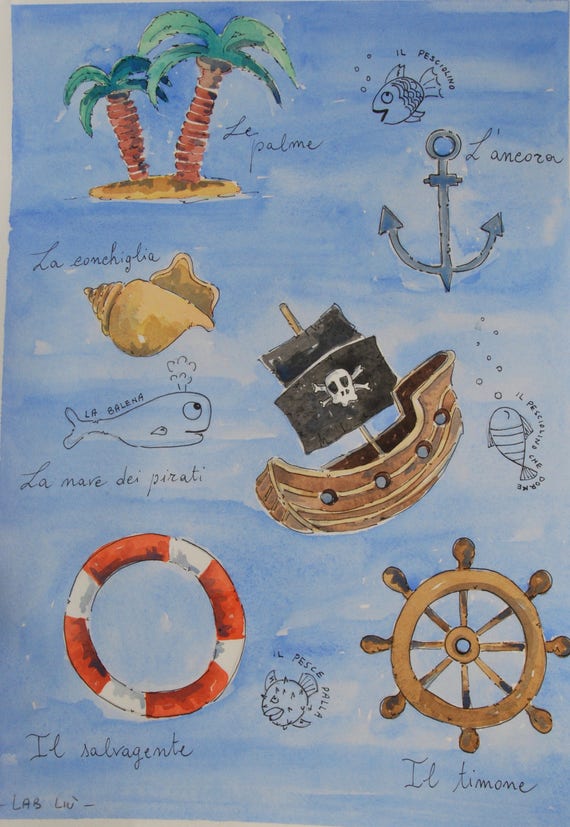 IL PESCIOLINO
Le
palme
L'ancora
La conchiglia
LA BALENA
IL PESCIOLINO CHE DORME
La nave dei pirati
IL PESCE PALLA
Il salvagente
Il timone
- LAB LIÙ -